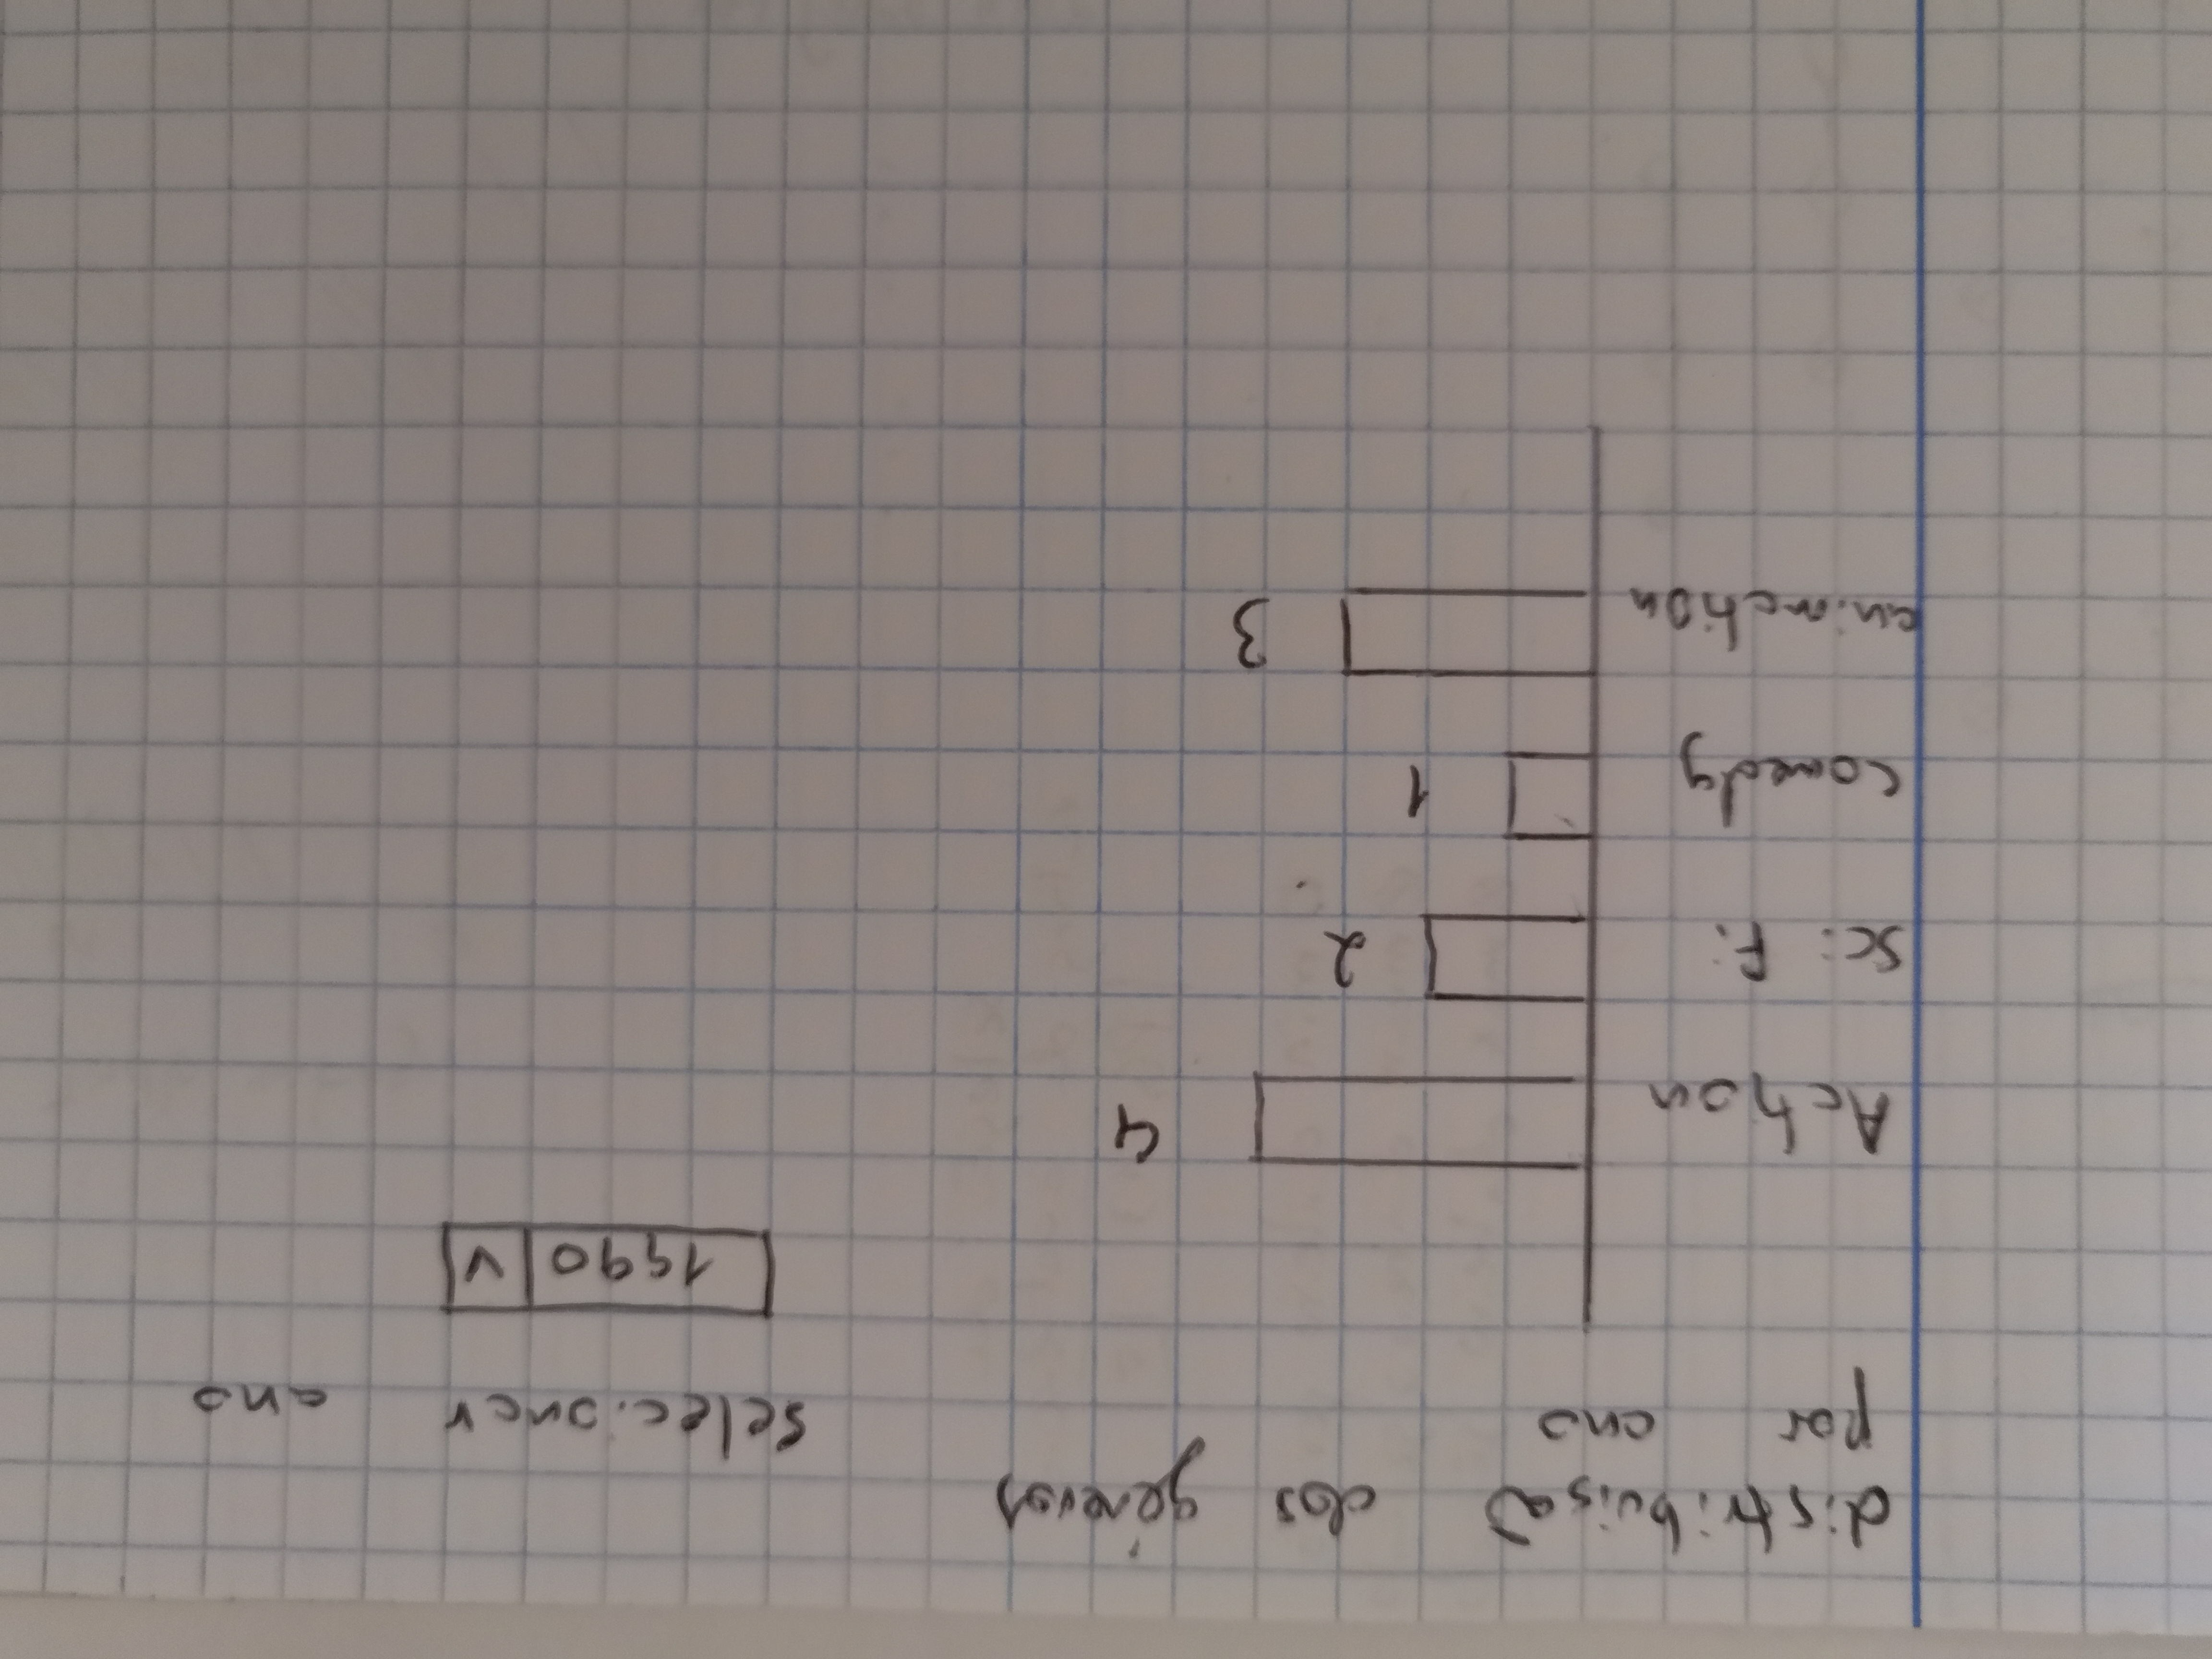 distribuisão dos géneros
por ano
selecionar ano
1990 v
Action 4
Sci Fi 2
Comedy 1
animation 3